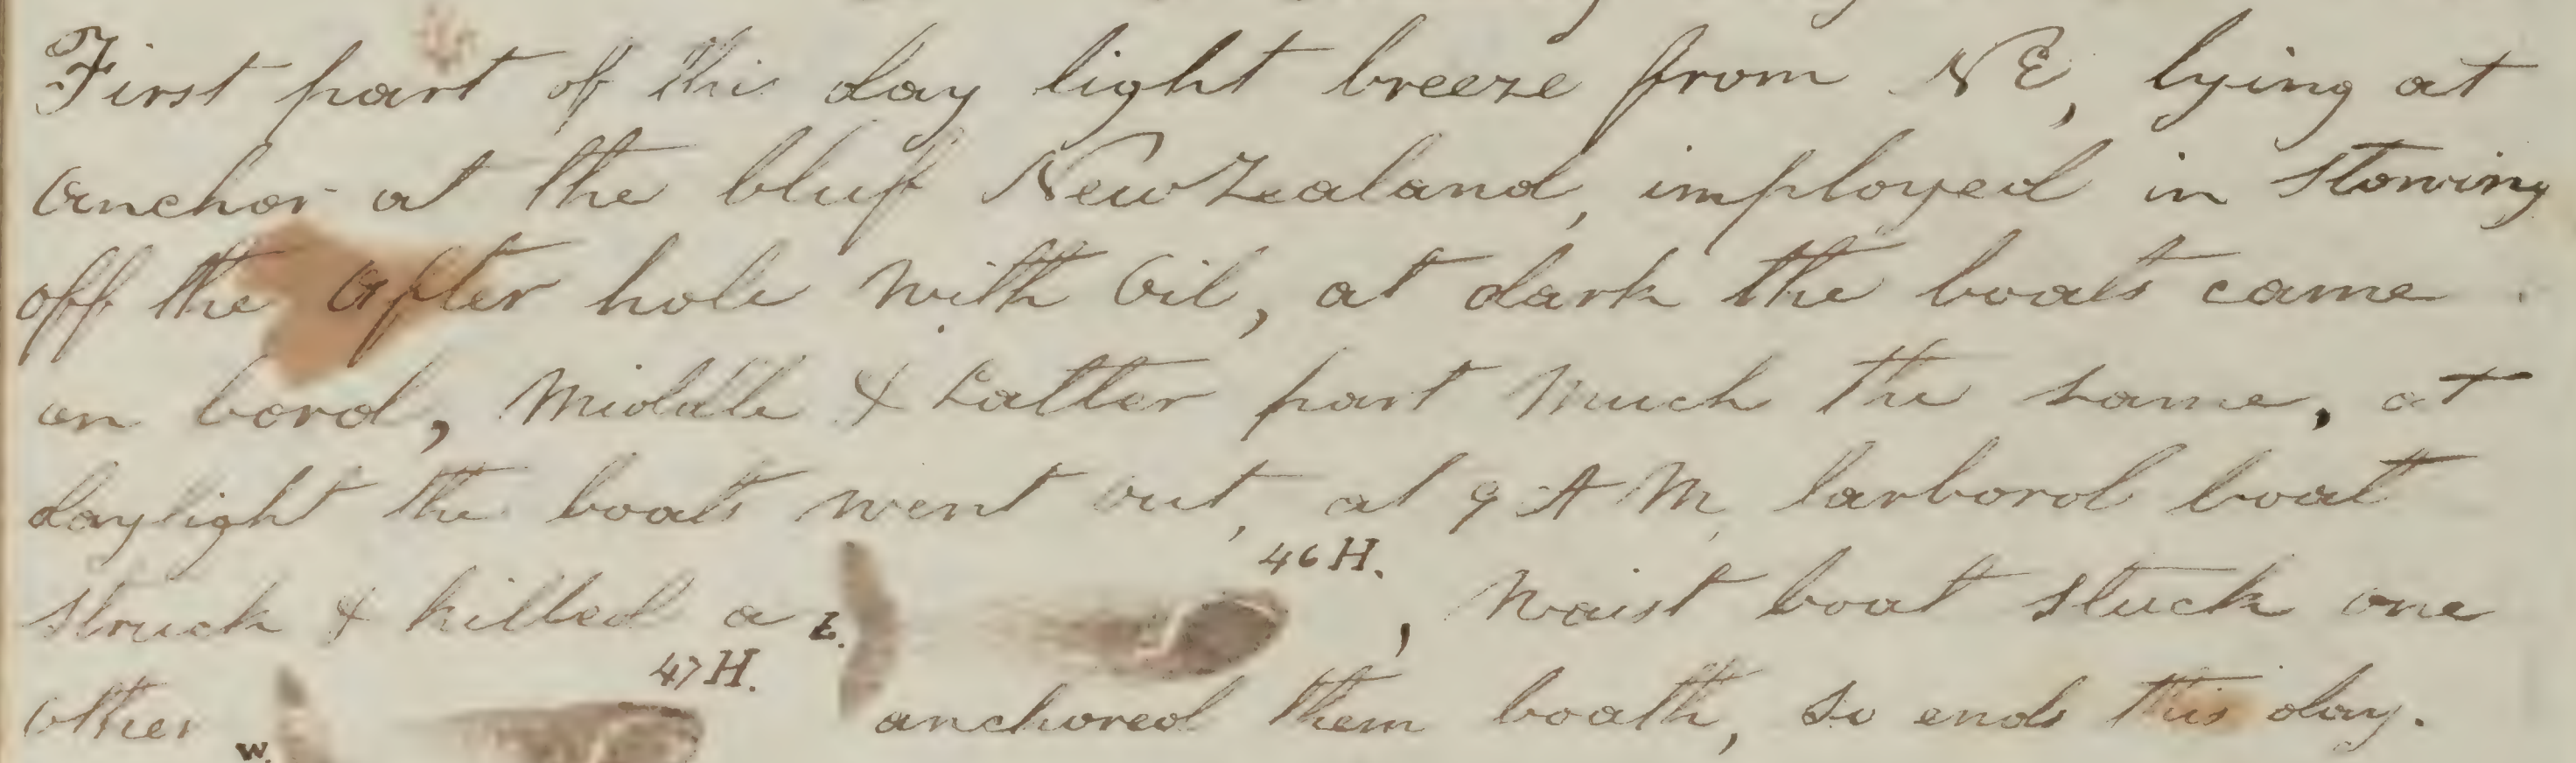 First part of this day light breeze from NE, lying at
anchor at the bluf New Zealand, imployed in stowing
off the after hole with Oil, at dark the boats came
on bord, Middle & Latter part Much the same, at
daylight the boats went out, at 9 A M, larbord boat
struck & killed a L. 46 H. , Waist boat stuck one
other W. 47 H. anchored them boath, so ends this day.